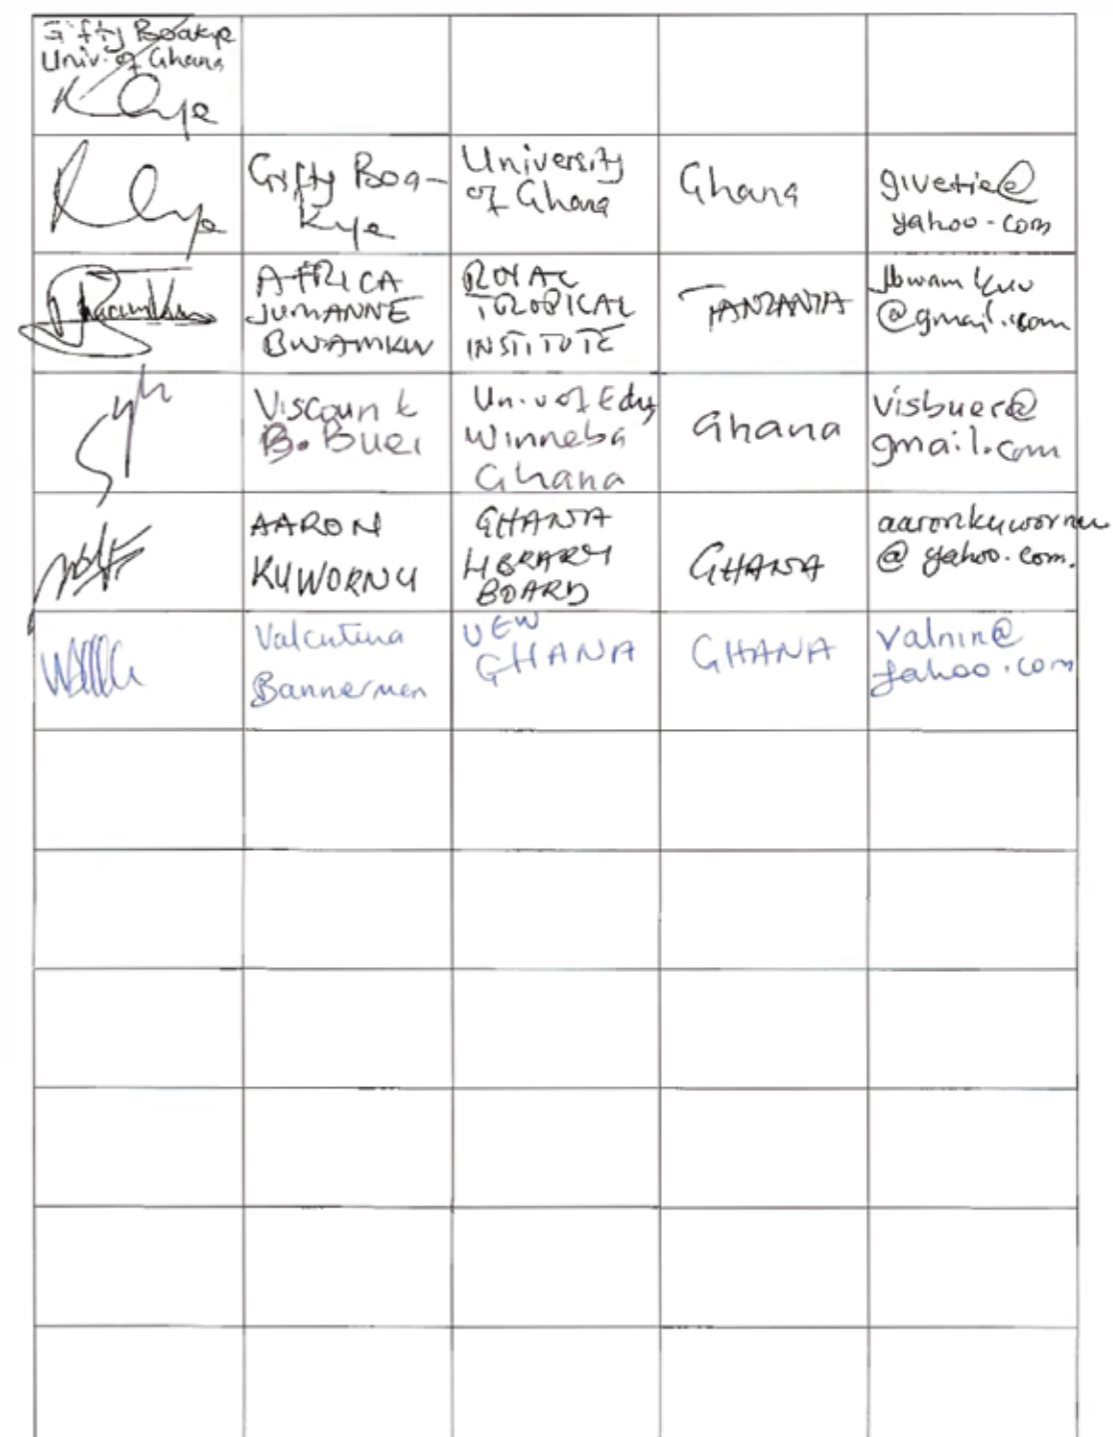 Gifty Boakye
Univ. of Ghana
Gifty Boa-
kye
University
of Ghana
Ghana
givetie@
yahoo.com
AFRICA
JUMANNE
BWAMKUU
ROYAL
TROPICAL
INSTITUTE
TANZANIA
Jbwamkuu
@gmail.com
Viscount
B. Buer
Univ of Edu,
Winneba
Ghana
Ghana
visbuer@
gmail.com
AARON
KUWORNU
GHANA
LIBRARY
BOARD
GHANA
aaronkuwornu
@ yahoo.com.
Valentina
Bannerman
UEW
GHANA
GHANA
valnin@
yahoo.com